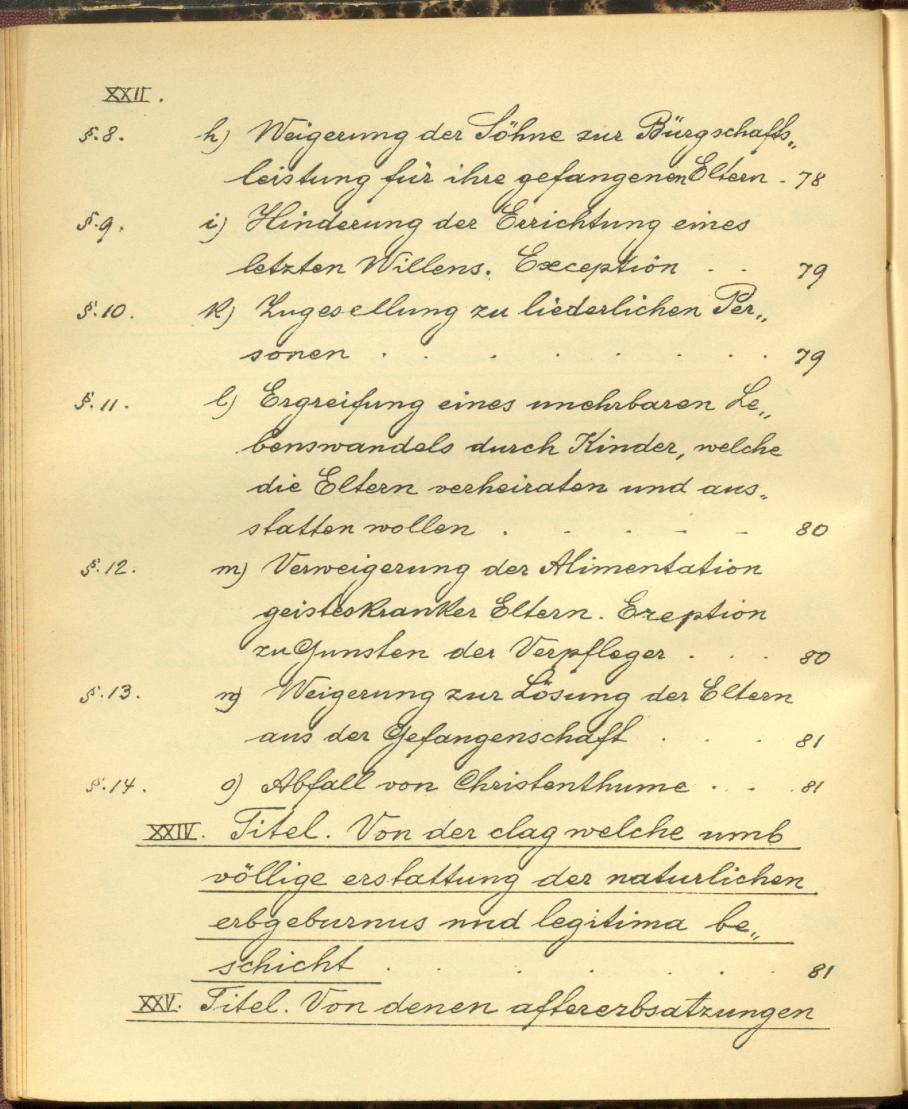 XXII.
§.8. h) Weigerung der Söhne zur Bürgschafts„
leistung für ihre gefangenen Eltern . 78
§.9. i) Hinderung der Errichtung eines
letzten Willens. Exception . . 79
§.10. k) Zugesellung zu liederlichen Per„
sonen . . . . . . . . 79
§.11. l) Ergreifung eines unehrbaren Le„
benswandels durch Kinder, welche
die Eltern verheiraten und aus„
statten wollen . . . . . 80
§.12. m) Verweigerung der Alimentation
geisteskranker Eltern. Exeption
zu Gunsten der Verpfleger . . . 80
§.13. n) Weigerung zur Lösung der Eltern
aus der Gefangenschaft . . . 81
§.14. o) Abfall von Christenthume . . . 81
XXIV. Titel. Von der clag welche umb
völlige erstattung der naturlichen
erbgeburnus und legitima be„
schicht . . . . . . . 81
XXV. Titel. Von denen aftererbsatzungen